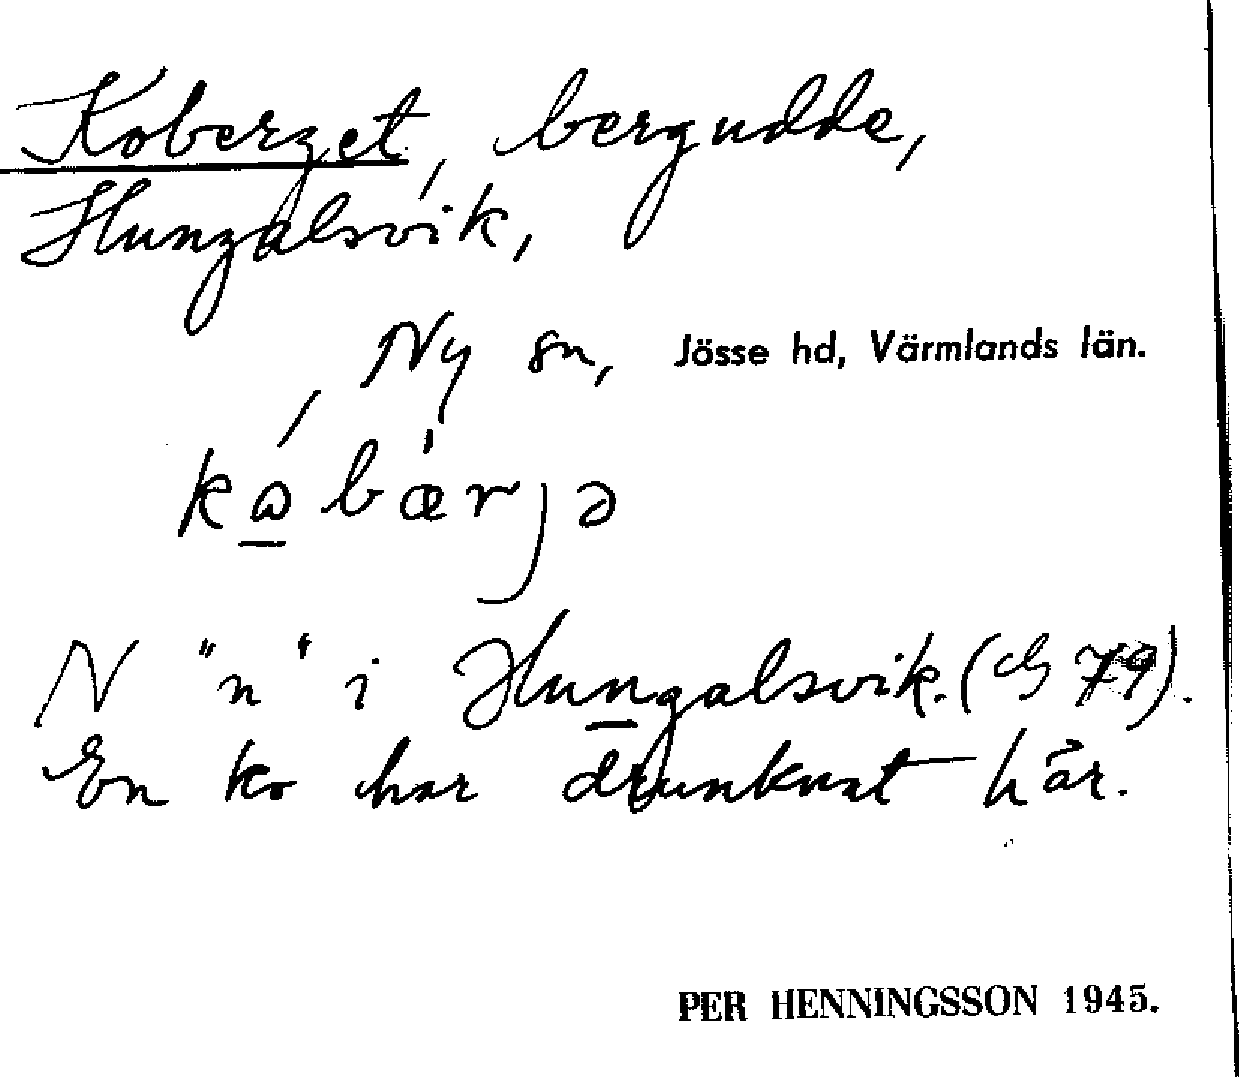 Koberget, bergudde,
Hungalsvik,
Ny sn, Jösse hd, Värmlands län.
kábæ̀rjə
N "n" i Hungalsvik. (ch 79).
En ko har drunknat här.
PER HENNINGSSON 1945.